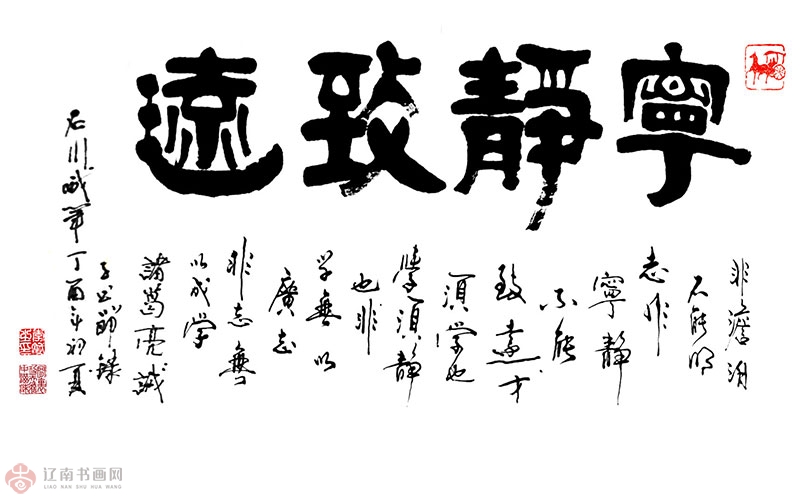 寧靜致遠
非澹泊
不能明
志非
寧靜
不能
致遠夫
須學也
學須靜
也非
學無以
廣志
非志無
以成学
諸葛亮誡
子书節錄
丁酉年初夏
辽南书画网
LIAO NAN SHU HUA WANG